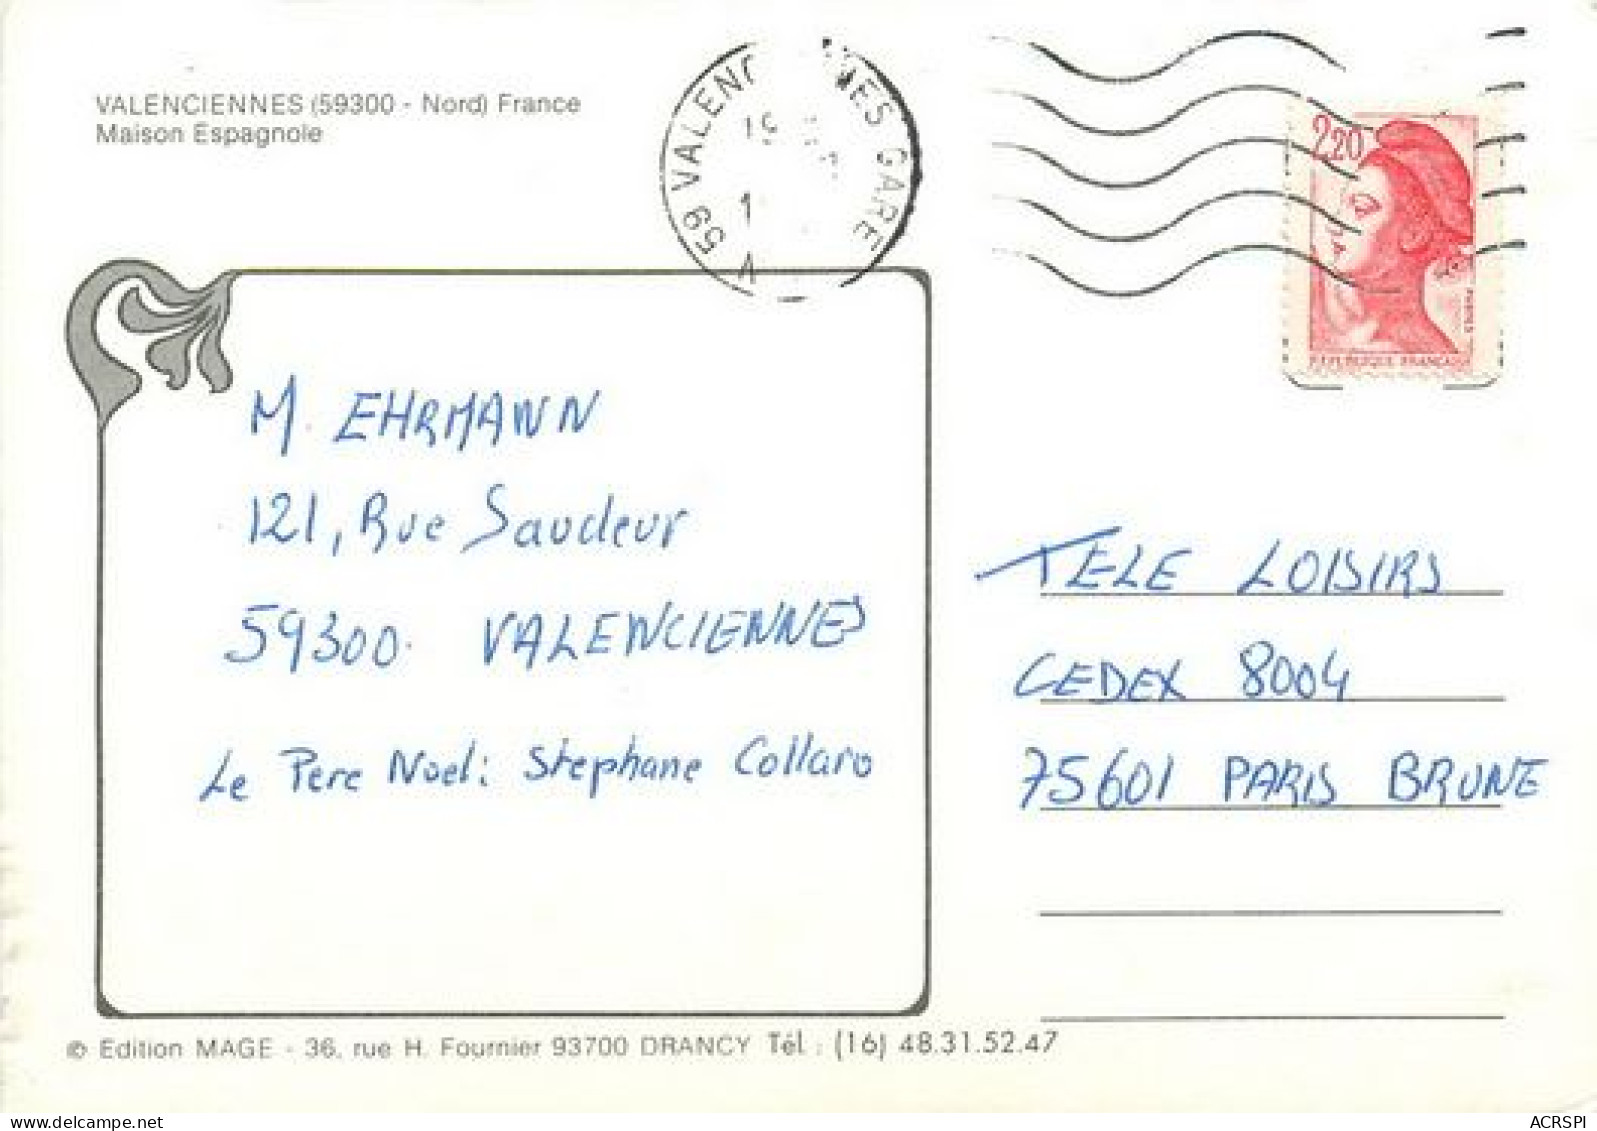 VALENCIENNES (59300 - Nord) France
Maison Espagnole
59 VALENC NES GARE
2,20
REPUBLIQUE FRANCAISE
M. EHRMANN
121, Rue Saudeur
59300. VALENCIENNES
Le Pere Noel: Stephane Collaro
TELE LOISIRS
CEDEX 8004
75601 PARIS BRUNE
© Edition MAGE - 36, rue H. Fournier 93700 DRANCY Tél : (16) 48.31.52.47
delcampe.net
ACRSPI